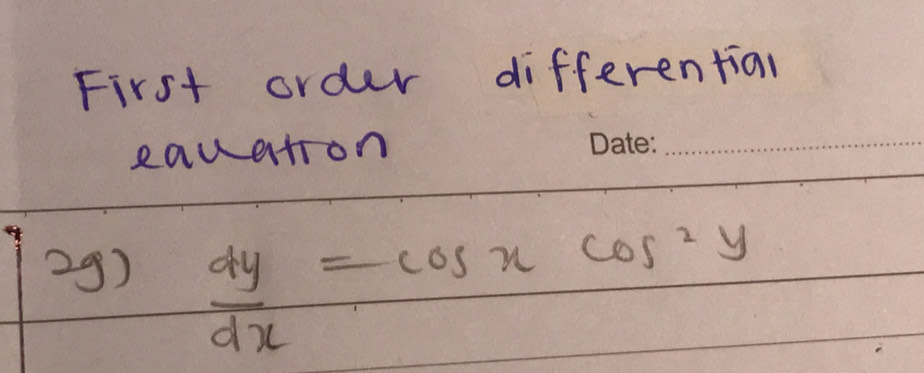 First order differential
eauation
Date:
2g) dy/dx = cos x cos² y